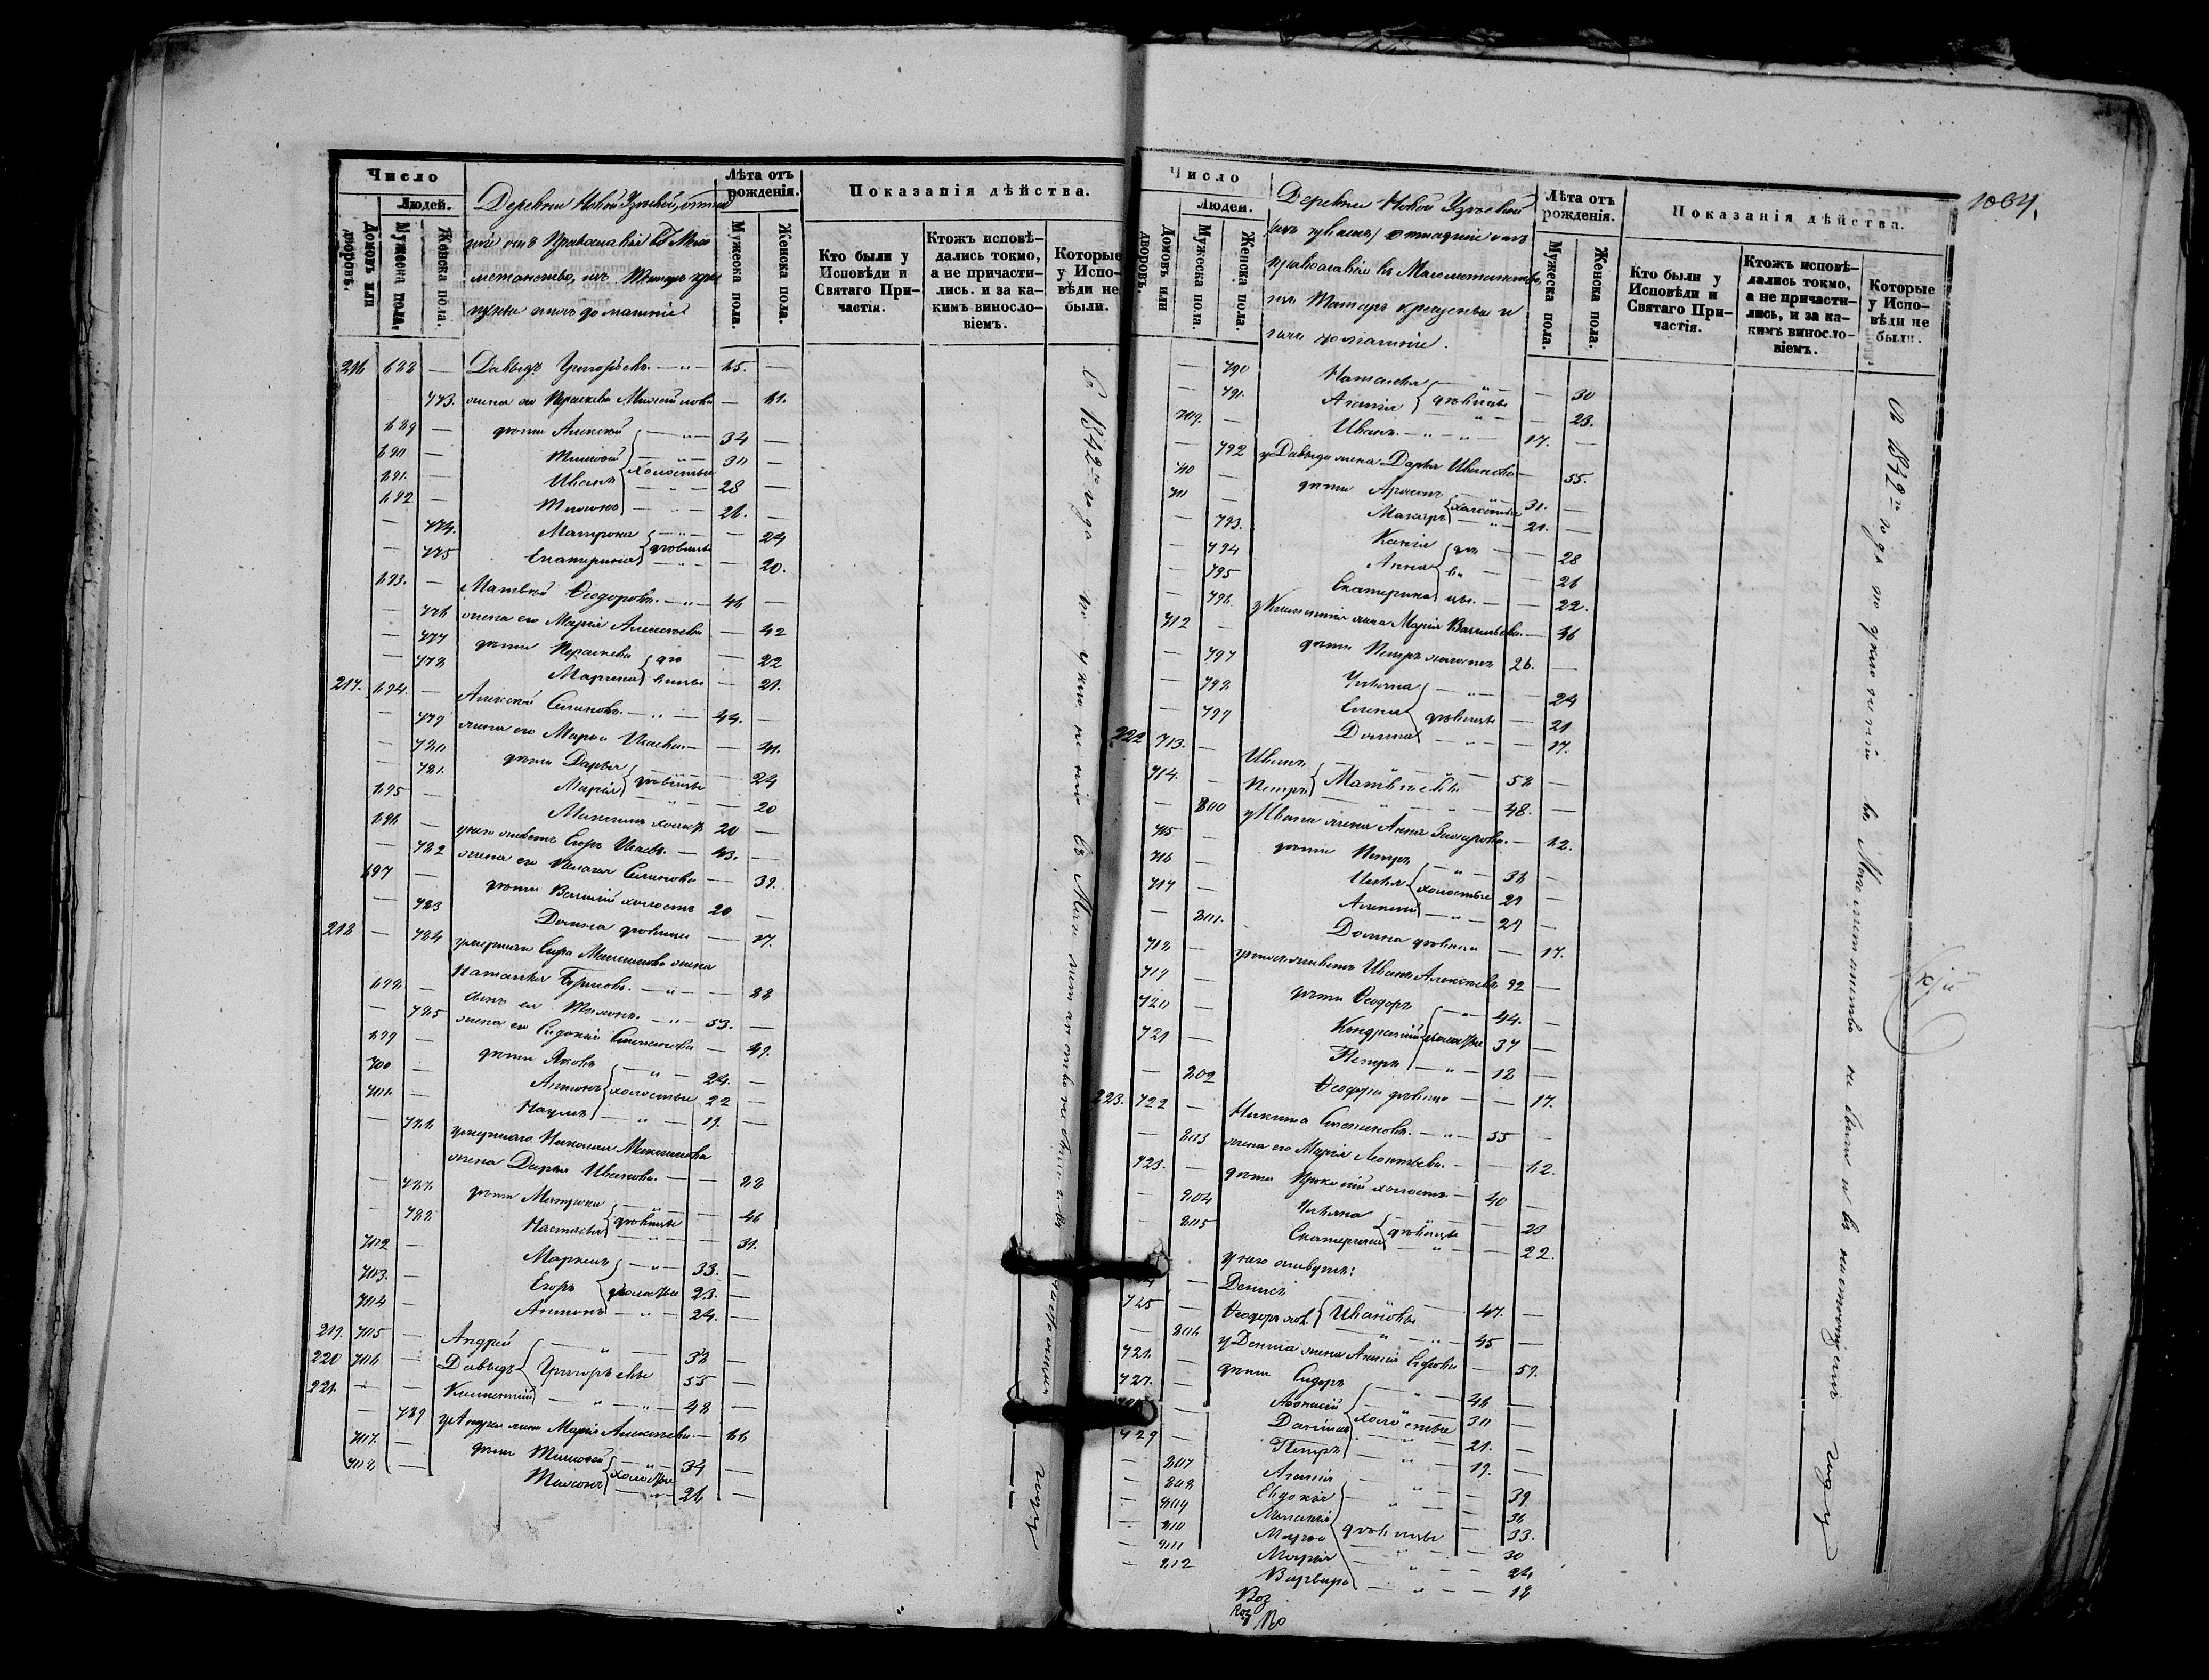 Число
Людей.
Домовъ или дворовъ.
Мужеска пола.
Женска пола.
Деревни Новой Узѣевой,
изъ Православія въ Маго
метанство, изъ Татаръ кре
щены они домашніе
Лѣта отъ рожденія.
Мужеска пола.
Женска пола.
Показанія дѣйства.
Кто были у Исповѣди и Святаго Причастія.
Ктожъ исповѣдались токмо, а не причастились. и за какимъ винословіемъ.
Которые у Исповѣди не были.
216 688 — Давыдъ Григорьевъ. — 65. —
773. жена его Параскева Михайлова — 61.
689 — дѣти Алексѣй — 34 —
690 — Тимофей — 30 —
691. — Иванъ холостые 28 —
692 — 26. —
— 774. Матрона — 24
— 775 Екатерина дѣвицы — 20.
693. — Матвѣй Ѳеодоровъ. — 46 —
— 776 жена его Марія Алексѣева — 42
— 777 дѣти Параскева дѣ — 22
— 778 Марина вицы — 21.
217. 694. — Алексѣй Семеновъ. — 44. —
— 779 жена его Марѳа Исаева. — 41.
— 780 дѣти Дарья — 24
— 781. Марія дѣвицы — 20
695 — Максимъ холостъ 20 —
696 — у него живетъ Егоръ Исаевъ. — 43. —
— 782 жена его Пелагея Семенова — 39.
697 — дѣти Василій холостъ 20 —
— 783 Домна дѣвица — 17.
218 — 784 умершаго Сидра Максимова жена
Наталья Борисова. — 88
698 — сынъ ея — 53. —
— 785 жена его Евдокія Степанова — 49.
699 — дѣти Яковъ — 24. —
700 — Антонъ холостые 22 —
701. — Наумъ — 19. —
— 786 умершаго Николая Максимова
жена Дарья Иванова. — 88
— 787. дѣти Матрона — 46
— 788 Настасья дѣвицы — 31.
702 — Маркелъ — 33. —
703. — Егоръ холостые 23. —
704 — Антонъ — 24. —
219. 705 — Андрей — 38 —
220 706 — Давыдъ Григорьевы 55 —
221. — — Климентій — 48 —
— 789 у Андрея жена Марія Алексѣева. — 66
707. — дѣти Тимофей — 34 —
708 — холостые 26 —
Съ 1842го года по уклоненію въ Магометанство не были и въ настоящемъ году
1004.
Число
Людей.
Домовъ или дворовъ.
Мужеска пола.
Женска пола.
Деревни Новой Узѣевой
отпадшіе изъ
православія въ Магометанство,
изъ Татаръ крещены и
домашніе.
Лѣта отъ рожденія.
Мужеска пола.
Женска пола.
Показанія дѣйства.
Кто были у Исповѣди и Святаго Причастія.
Ктожъ исповѣдались токмо, а не причастились, и за какимъ винословіемъ.
Которые у Исповѣди не были.
— 790 Наталья — 30
— 791. Агапія дѣвицы — 23.
709. — Иванъ. — 17. —
— 792 у Давыда жена Дарья Иванова — 55.
710 — дѣти — 31. —
711 — Макаръ холостые 21. —
— 793. Ксенія дѣ — 28
— 794 Анна ви — 26
— 795 Екатерина цы. — 22.
— 796. у Климентія жена Марія Васильева. — 46
712 — дѣти Петръ холостъ 26. —
— 797 Ульяна — 24
— 798. Елена дѣвицы — 21
— 799 Домна — 17.
222 713. — Иванъ — 58 —
714. — Петръ Матвѣевы 48. —
— 800 у Ивана жена Анна Захарова. — 62.
715 — дѣти Петръ — 38 —
716 — Илья холостые 29 —
717 — Алексѣй — 21 —
— 801. Домна дѣвица — 17.
718 — у нихъ живетъ Иванъ Алексѣевъ 92 —
719 — дѣти Ѳеодоръ — 44. —
720 — Кондратій холостые 37 —
721 — Петръ — 18 —
— 802 Ѳеодора дѣвица — 17.
223. 722 — Никита Семеновъ. — 55 —
— 803 жена его Марія Леонтьева. — 62.
723. — дѣти Прокопій холостъ — 40 —
— 804 Ульяна — 23
— 805 Екатерина дѣвицы — 22.
у него живутъ:
— Денисъ — 47. —
725 — Ѳеодоръ хол. Ивановы 45 —
— 806 у Дениса жена Анисія — 59.
726. — дѣти Сидоръ — 46 —
727. — Аѳанасій — 30 —
— Даніилъ холостые 21. —
729 — Петръ — 19. —
— 807 Агапія — 39.
— 808 Евдокія — 36
— 809 — 33.
— 810 Марѳа дѣвицы — 30
— 811 Марія — 24
— 812 Варвара — 18
Съ 1842го года по уклоненію въ Магометанство не были и въ настоящемъ году